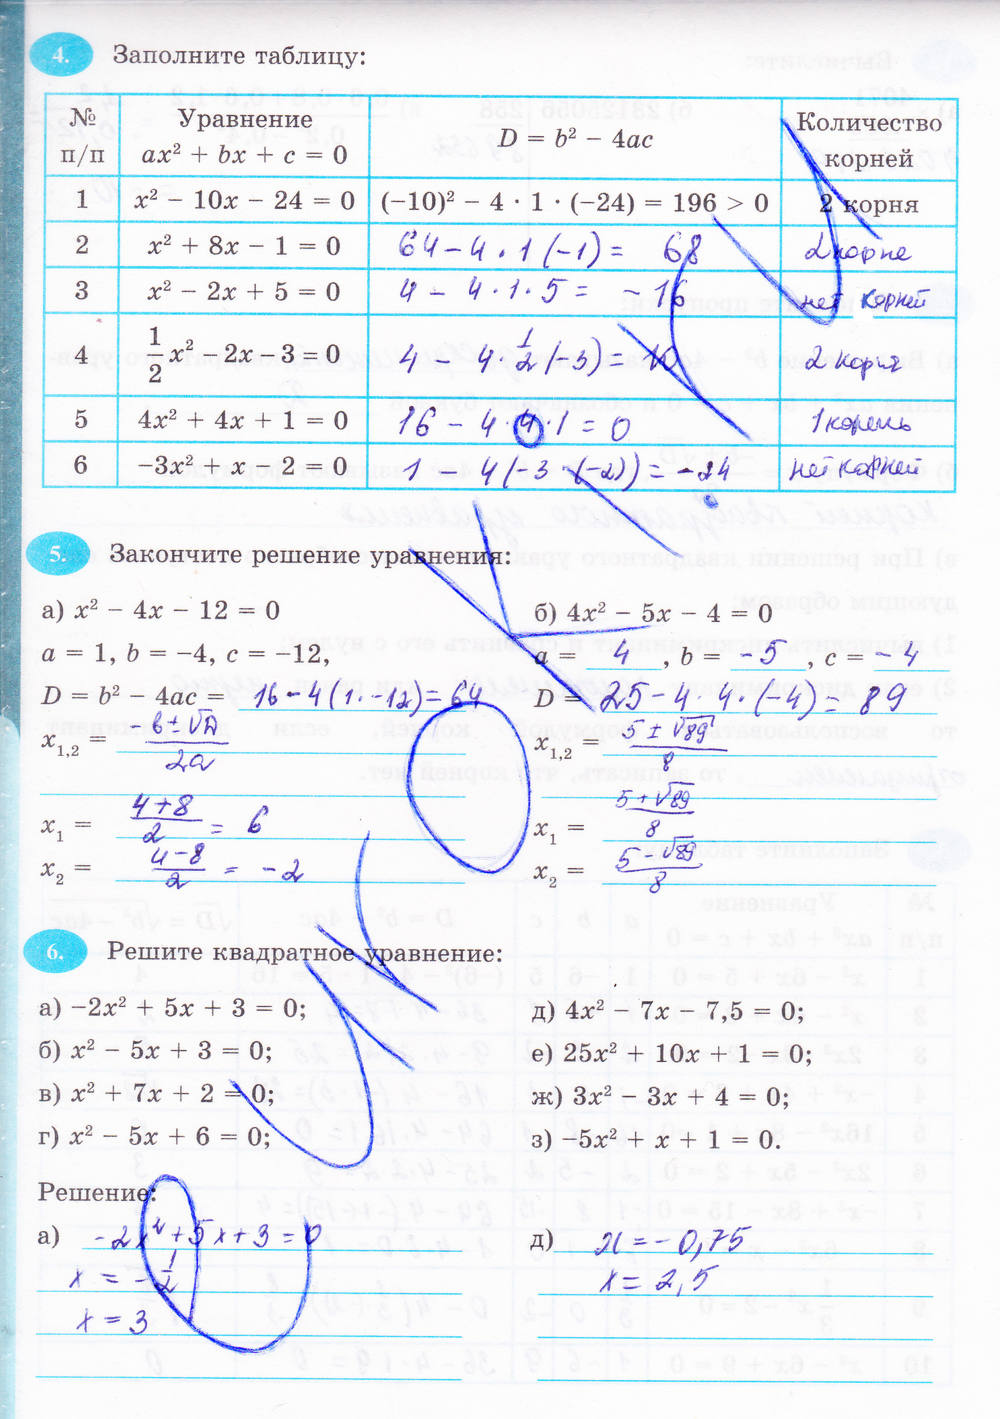 4. Заполните таблицу:
№ п/п Уравнение ax² + bx + c = 0 D = b² − 4ac Количество корней
1 x² − 10x − 24 = 0 (−10)² − 4 · 1 · (−24) = 196 > 0 2 корня
2 x² + 8x − 1 = 0 64 − 4 · 1 (−1) = 68 2 корне
3 x² − 2x + 5 = 0 4 − 4 · 1 · 5 = −16 нет корней
4 1/2 x² − 2x − 3 = 0 4 4 · 1/2 (−3) = 10 2 корня
5 4x² + 4x + 1 = 0 16 − 4 · 4 · 1 = 0 1 корень
6 −3x² + x − 2 = 0 1 − 4 (−3 · (−2)) = −24 нет корней
5. Закончите решение уравнения:
а) x² − 4x − 12 = 0
a = 1, b = −4, c = −12,
D = b² − 4ac = 16 − 4 (1 · −12) = 64
x1,2 = −b ± √D / 2a
x1 = 4+8 / 2 = 6
x2 = 4−8 / 2 = −2
б) 4x² − 5x − 4 = 0
a = 4, b = −5, c = −4
D = 25 − 4 · 4 · (−4) = 89
x1,2 = 5 ± √89 / 8
x1 = 5 + √89 / 8
x2 = 5 − √89 / 8
6. Решите квадратное уравнение:
а) −2x² + 5x + 3 = 0;
б) x² − 5x + 3 = 0;
в) x² + 7x + 2 = 0;
г) x² − 5x + 6 = 0;
д) 4x² − 7x − 7,5 = 0;
е) 25x² + 10x + 1 = 0;
ж) 3x² − 3x + 4 = 0;
з) −5x² + x + 1 = 0.
Решение:
а) −2x² + 5x + 3 = 0
x = −1/2
x = 3
д) x = −0,75
x = 2,5